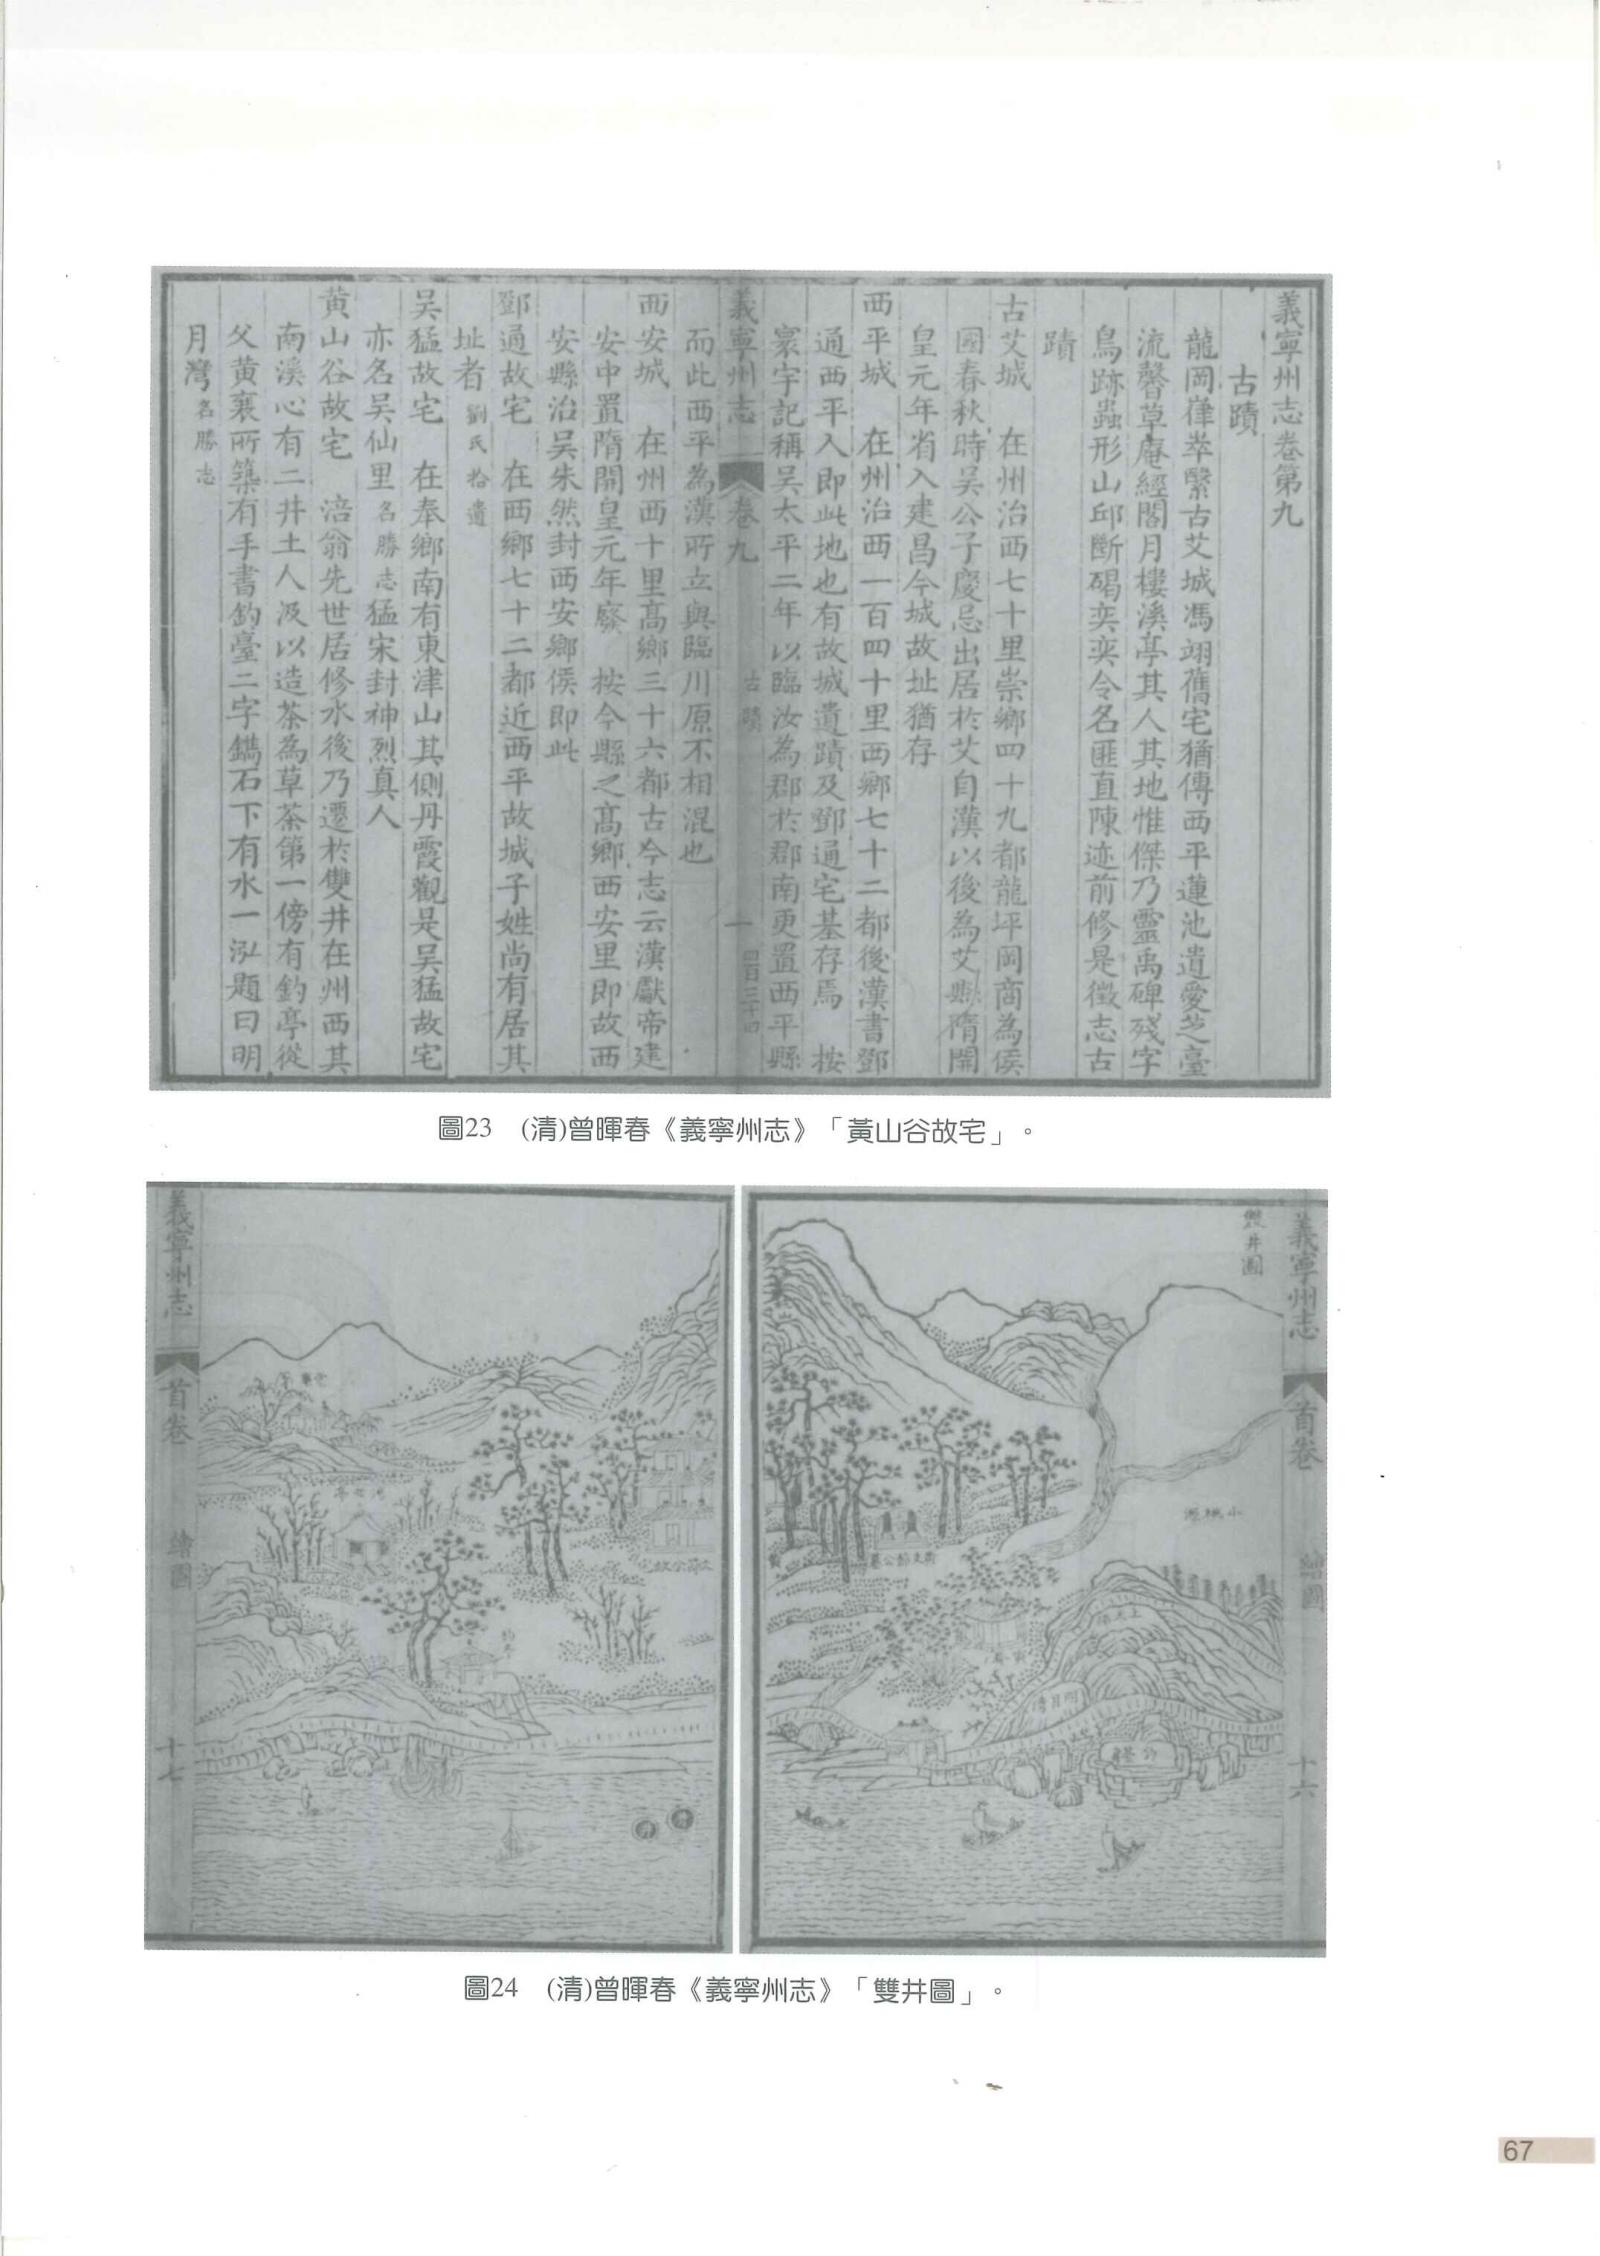 義寧州志卷第九
古蹟
龍岡嵂萃緊古艾城馮翊舊宅猶傳西平蓮池遺愛芝臺
流馨草庵經閣月樓溪亭其人其地惟傑乃靈禹碑殘字
鳥跡蟲形山邱斷碣奕奕令名匪直陳迹前修是徵志古
蹟
古艾城 在州治西七十里崇鄉四十九都龍坪岡商為侯
國春秋時吳公子慶忌出居於艾自漢以後為艾縣隋開
皇元年省入建昌今城故址猶存
西平城 在州治西一百四十里西鄉七十二都後漢書鄧
通西平入即此地也有故城遺蹟及鄧通宅基存焉 按
寰宇記稱吳太平二年以臨汝為郡於郡南更置西平縣
義寧州志 卷九 古蹟 一 四百三十四
而此西平為漢所立與臨川原不相混也
西安城 在州西十里高鄉三十六都古今志云漢獻帝建
安中置隋開皇元年廢 按今縣之高鄉西安里即故西
安縣治吳朱然封西安鄉侯即此
鄧通故宅 在西鄉七十二都近西平故城子姓尚有居其
址者 劉氏拾遺
吳猛故宅 在奉鄉南有東津山其側丹霞觀是吳猛故宅
亦名吳仙里 名勝志 猛宋封神烈真人
黃山谷故宅 涪翁先世居修水後乃遷於雙井在州西其
南溪心有二井土人汲以造茶為草茶第一傍有釣亭從
父黃襄所築有手書釣臺二字鐫石下有水一泓題曰明
月灣 名勝志
圖23 (清)曾暉春《義寧州志》「黃山谷故宅」。
義寧州志 首卷 繪圖 十六
雙井圖
小桃源
明月灣
釣臺
義寧州志 首卷 繪圖 十七
井
井
圖24 (清)曾暉春《義寧州志》「雙井圖」。
67